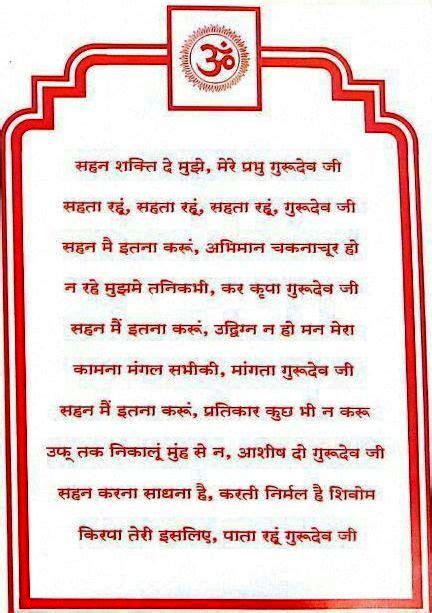 ॐ
सहन शक्ति दे मुझे, मेरे प्रभु गुरूदेव जी
सहता रहूं, सहता रहूं, सहता रहूं, गुरूदेव जी
सहन मै इतना करूं, अभिमान चकनाचूर हो
न रहे मुझमे तनिकभी, कर कृपा गुरूदेव जी
सहन मैं इतना करूं, उद्विग्न न हो मन मेरा
कामना मंगल सभीकी, मांगता गुरूदेव जी
सहन मैं इतना करूं, प्रतिकार कुछ भी न करू
उफ् तक निकालूं मुंह से न, आशीष दो गुरूदेव जी
सहन करना साधना है, करती निर्मल है शिवोम
किरपा तेरी इसलिए, पाता रहूं गुरूदेव जी